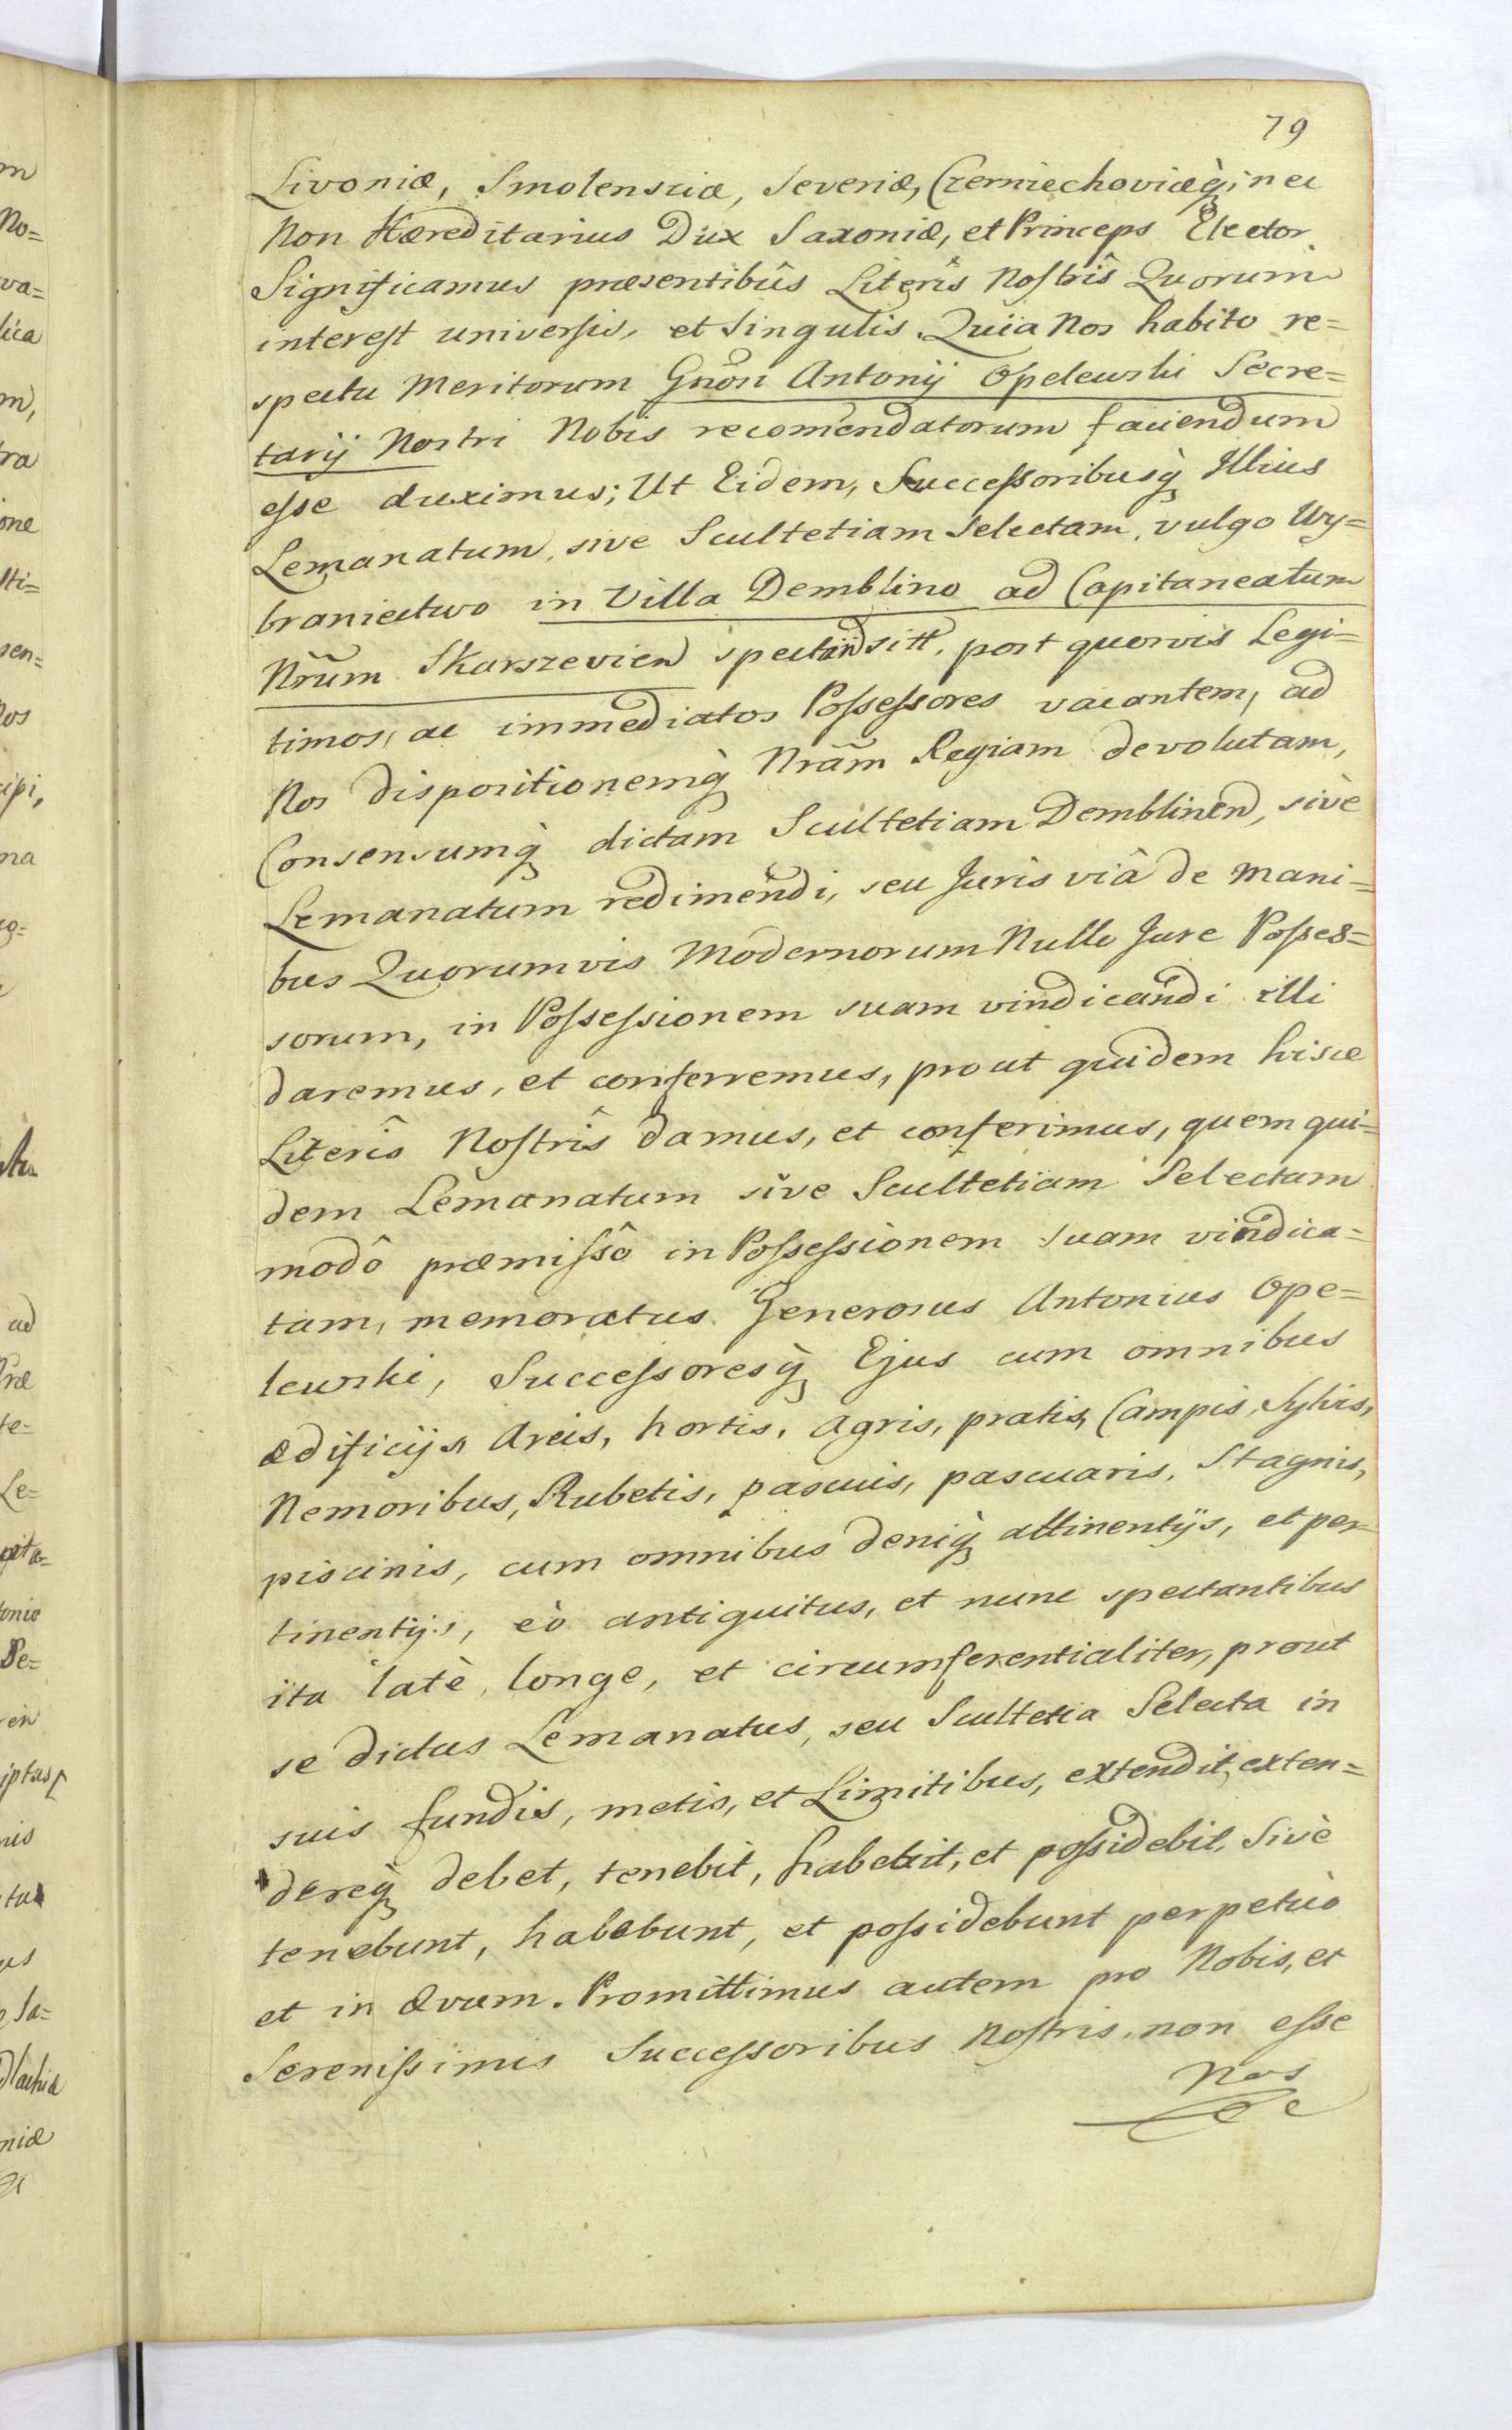 79
Livoniæ, Smolensciæ, Severiæ, Czerniechoviæq̀; nec
Non Hæreditarius Dux Saxoniæ, et Princeps Elector
Significamus præsentibûs Literîs Nostrîs Quorum
interest universis, et singulis. Quia Nos habito re=
spectu Meritorum Gnõsi Antonij Opelewski Secre=
tarij Nostri Nobis recomendatorum faciendum
esse duximus; Ut Eidem, Successoribusq̀ Illius
Lemanatum, sive Scultetiam Selectam, vulgo Wy=
braniectwo in Villa Demblino ad Capitaneatum
Nrũm Skarszevien spectañ sitt. post quosvis Legi=
timos, ac immediatos Possessores vacantem, ad
Nos dispositionemq̀ Nrãm Regiam devolutam,
Consensumq̀ dictam Scultetiam Demblinen, sivè
Lemanatum redimendi, seu Juris viâ de mani=
bus Quorumvis Modernorum Nullo Jure Posses=
sorum, in Possessionem suam vindicandi illi
daremus, et conferremus, prout quidem hisce
Literîs Nostrîs damus, et conferimus, quem qui=
dem Lemanatum sive Scultetiam Selectam
modô præmissô in Possessionem suam vindica=
tam, memoratus Generosus Antonius Ope=
lewski, Successoresq̀ Ejus cum omnibus
ædificijs Areis, hortis, Agris, pratis, Campis, Sylvis,
Nemoribus, Rubetis, pascuis, pascuaris, Stagnis,
piscinis, cum omnibus deniq̀ attinentijs, et per=
tinentijs, eò antiquitus, et nunc spectantibus
ita latè, longe, et circumferentialiter, prout
se dictus Lemanatus, seu Scultetia Selecta in
suis fundis, metis, et Limitibus, extendit, exten=
dereq̀ debet, tenebit, habebit, et possidebit, Sivè
tenebunt, habebunt, et possidebunt perpetuò
et in ævum. Promittimus autem pro Nobis, et
Serenissimis Successoribus Nostris, non esse
Nos